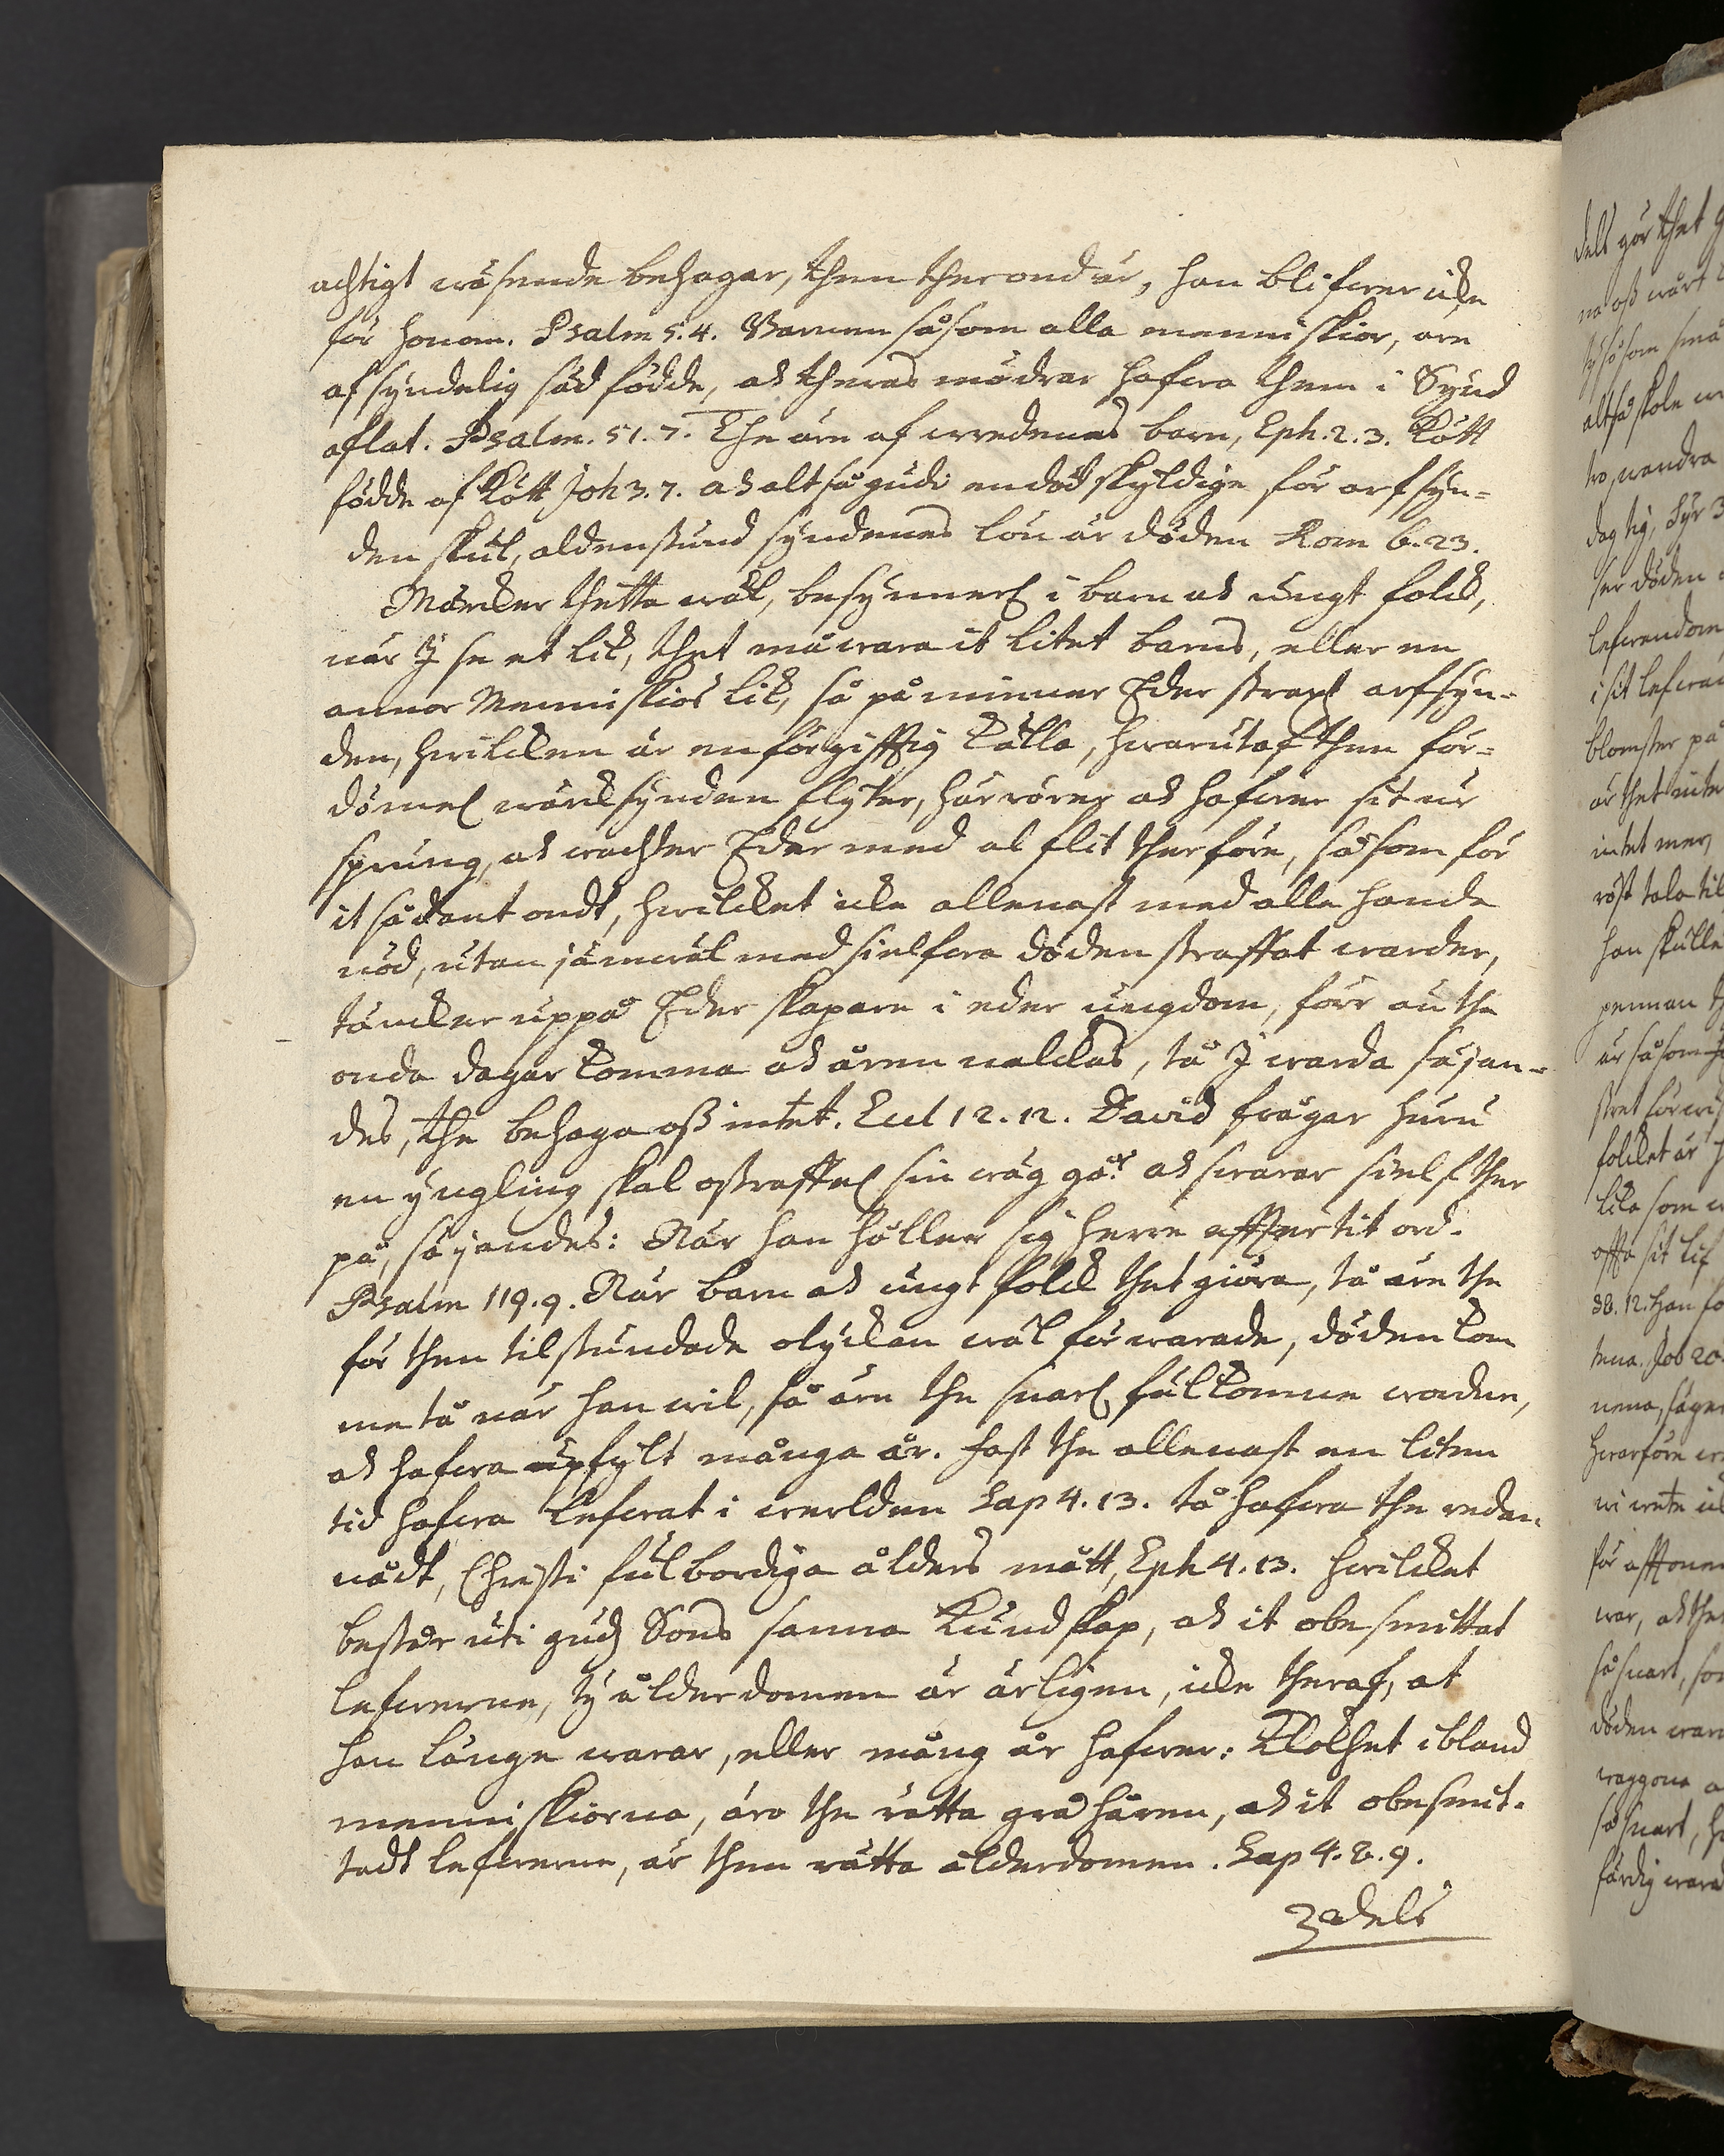 achtigt wäsende behagar, then ther ond är, han blifwer icke
för honom. Psalm 5.4. Barnen såsom alla menniskior, äre
af syndelig säd födde, och theras mödrar hafwa them i Synd
aflat. Psalm. 51.7. The äre af wredenes barn, Eph. 2.3. Kött
födde af Kött Joh 3.7. och altså gudi en död skyldige för arfsyn-
den skul, aldenstund syndenes lön är döden Rom 6.23.
Märcker thetta wäl, besynnerl i barn och ungt folck,
när I se et lik, thet må wara it litet barns, eller en
annor Menniskios lik, så påminner Eder straxt arfsyn-
den, hwilcken är en förgifftig källa, hwarutaf then för-
dömel wärcksynden flyter, härrörer och hafwer sit ur
sprung, och wachter Eder med al flit therföre, såsom för
it sådant ondt, hwilcket icke allenast med alla hande
nöd, utan jämwäl med sielfwa döden straffat warder,
täncker uppå Eder skapare i eder ungdom, förr än the
onda dagar komma och åren nalckas, tå I warda säjan-
des, the behaga oß intet. Eccl 12.12. David frågar huru
en yngling skal ostraffel sin wäg gå? och swarar sielf ther
på, säjandes: När han håller sig herre effter tit ord.
Psalm 119.9. När barn och ungt folck thet giöra, tå äre the
för then tilstundade olyckan wäl förwarade, döden kom
me tå när han wil, så äre the snarl fulkomne wordne,
och hafwa upfylt många år. fast the allenast en liten
tid hafwa lefwat i werlden Sap 4.13. tå hafwa the redan
nådt, Christi fulbordiga ålders mått, Eph 4.13. hwilcket
består uti gudz Sons sanna Kundskap, och it obesmittat
lefwerne, ty ålderdomen är ärligen, icke theraf, at
han länge warar, eller mång år hafwer: Klokhet ibland
menniskiorna, äro the rätta grå håren, och it obesmit-
tadt lefwerne, är then rätta ålderdomen. Sap 4.8.9.
3 dels